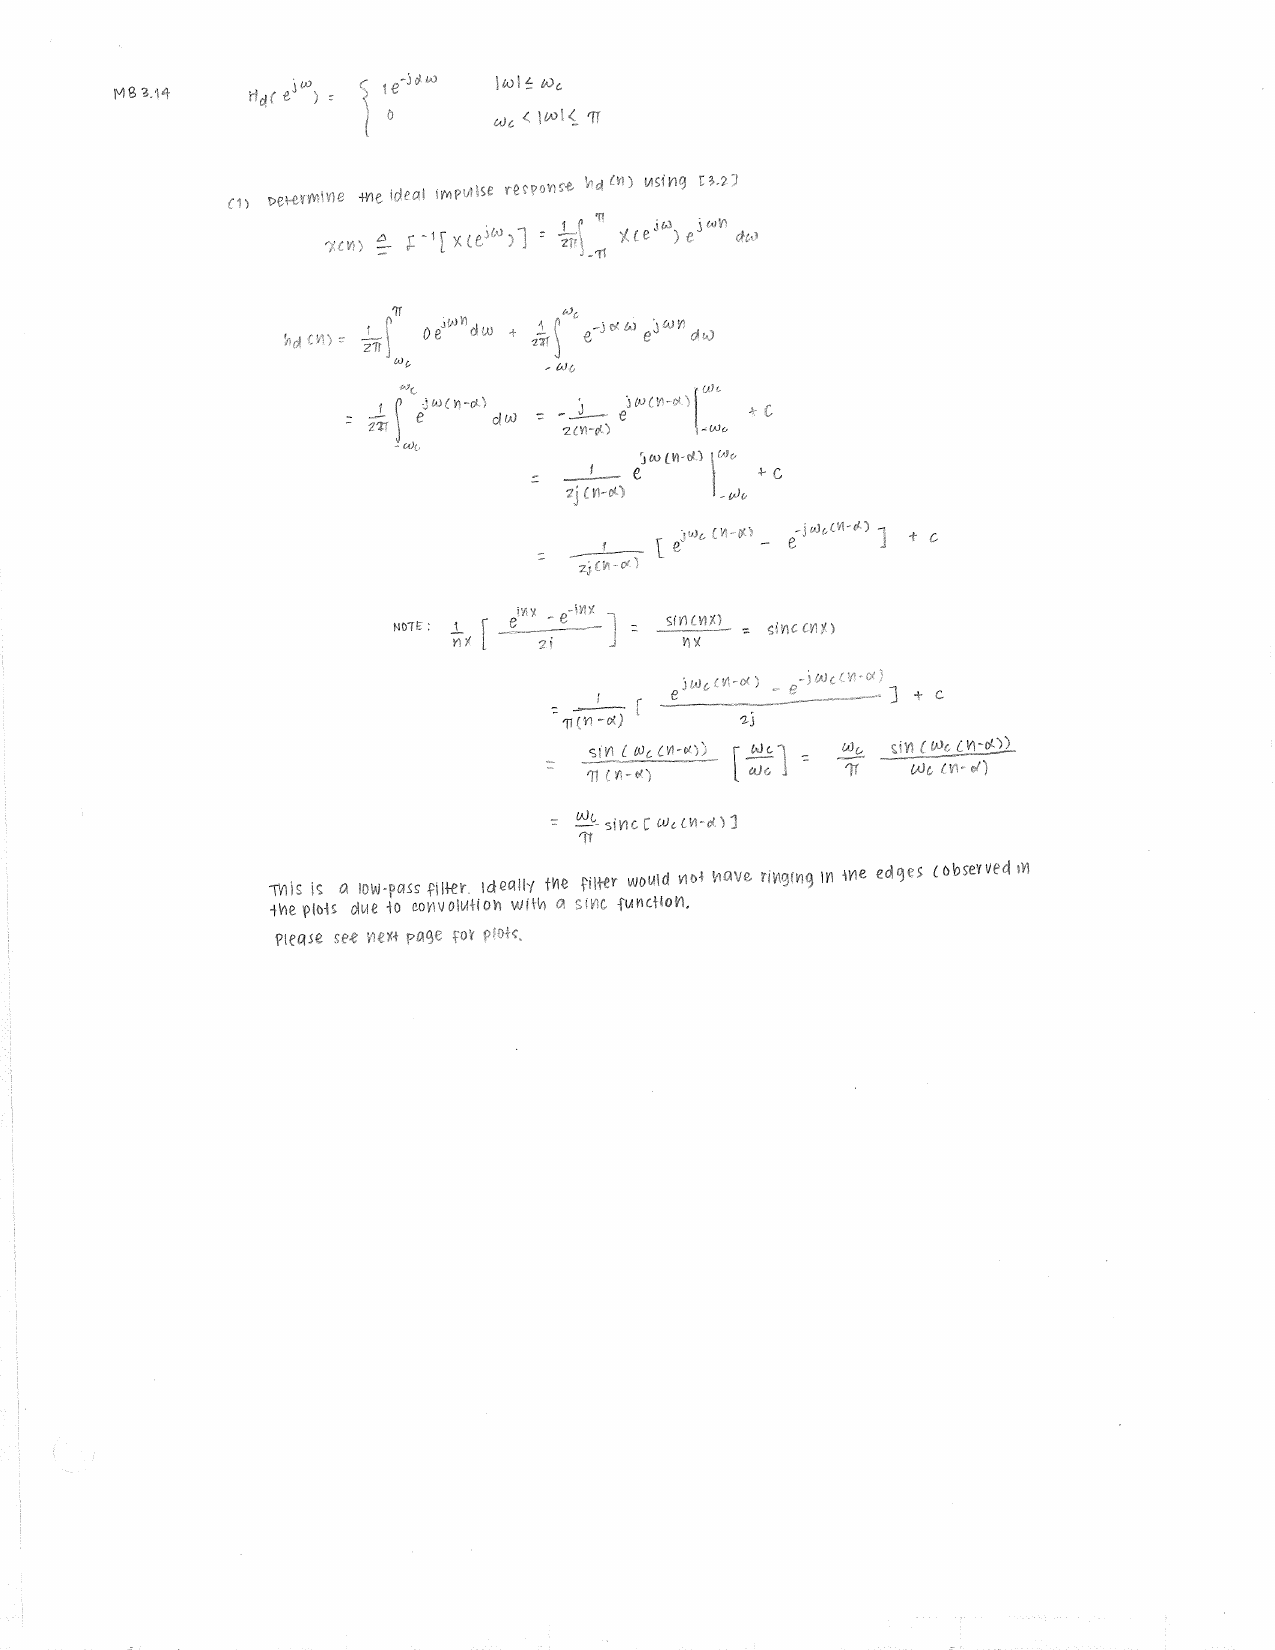 M8 3.14 H_d(e^{jω}) = { 1e^{-jαω} |ω| ≤ ω_c
0 ω_c < |ω| ≤ π
(1) Determine the ideal impulse response h_d(n) using [3.2]
x(n) ≜ F^{-1}[X(e^{jω})] = 1/2π ∫_{-π}^{π} X(e^{jω}) e^{jωn} dω
h_d(n) = 1/2π ∫_{ω_c}^{π} 0e^{jωn} dω + 1/2π ∫_{-ω_c}^{ω_c} e^{-jαω} e^{jωn} dω
= 1/2π ∫_{-ω_c}^{ω_c} e^{jω(n-α)} dω = -j/2(n-α) e^{jω(n-α)} |_{-ω_c}^{ω_c} + C
= 1/2j(n-α) e^{jω(n-α)} |_{-ω_c}^{ω_c} + C
= 1/2j(n-α) [e^{jω_c(n-α)} - e^{-jω_c(n-α)}] + C
NOTE: 1/nx [(e^{inx} - e^{-inx})/2i] = sin(nx)/nx = sinc(nx)
= 1/π(n-α) [(e^{jω_c(n-α)} - e^{-jω_c(n-α)})/2j] + C
= sin(ω_c(n-α))/π(n-α) [ω_c/ω_c] = ω_c/π sin(ω_c(n-α))/ω_c(n-α)
= ω_c/π sinc[ω_c(n-α)]
This is a low-pass filter. Ideally the filter would not have ringing in the edges (observed in
the plots due to convolution with a sinc function.
Please see next page for plots.